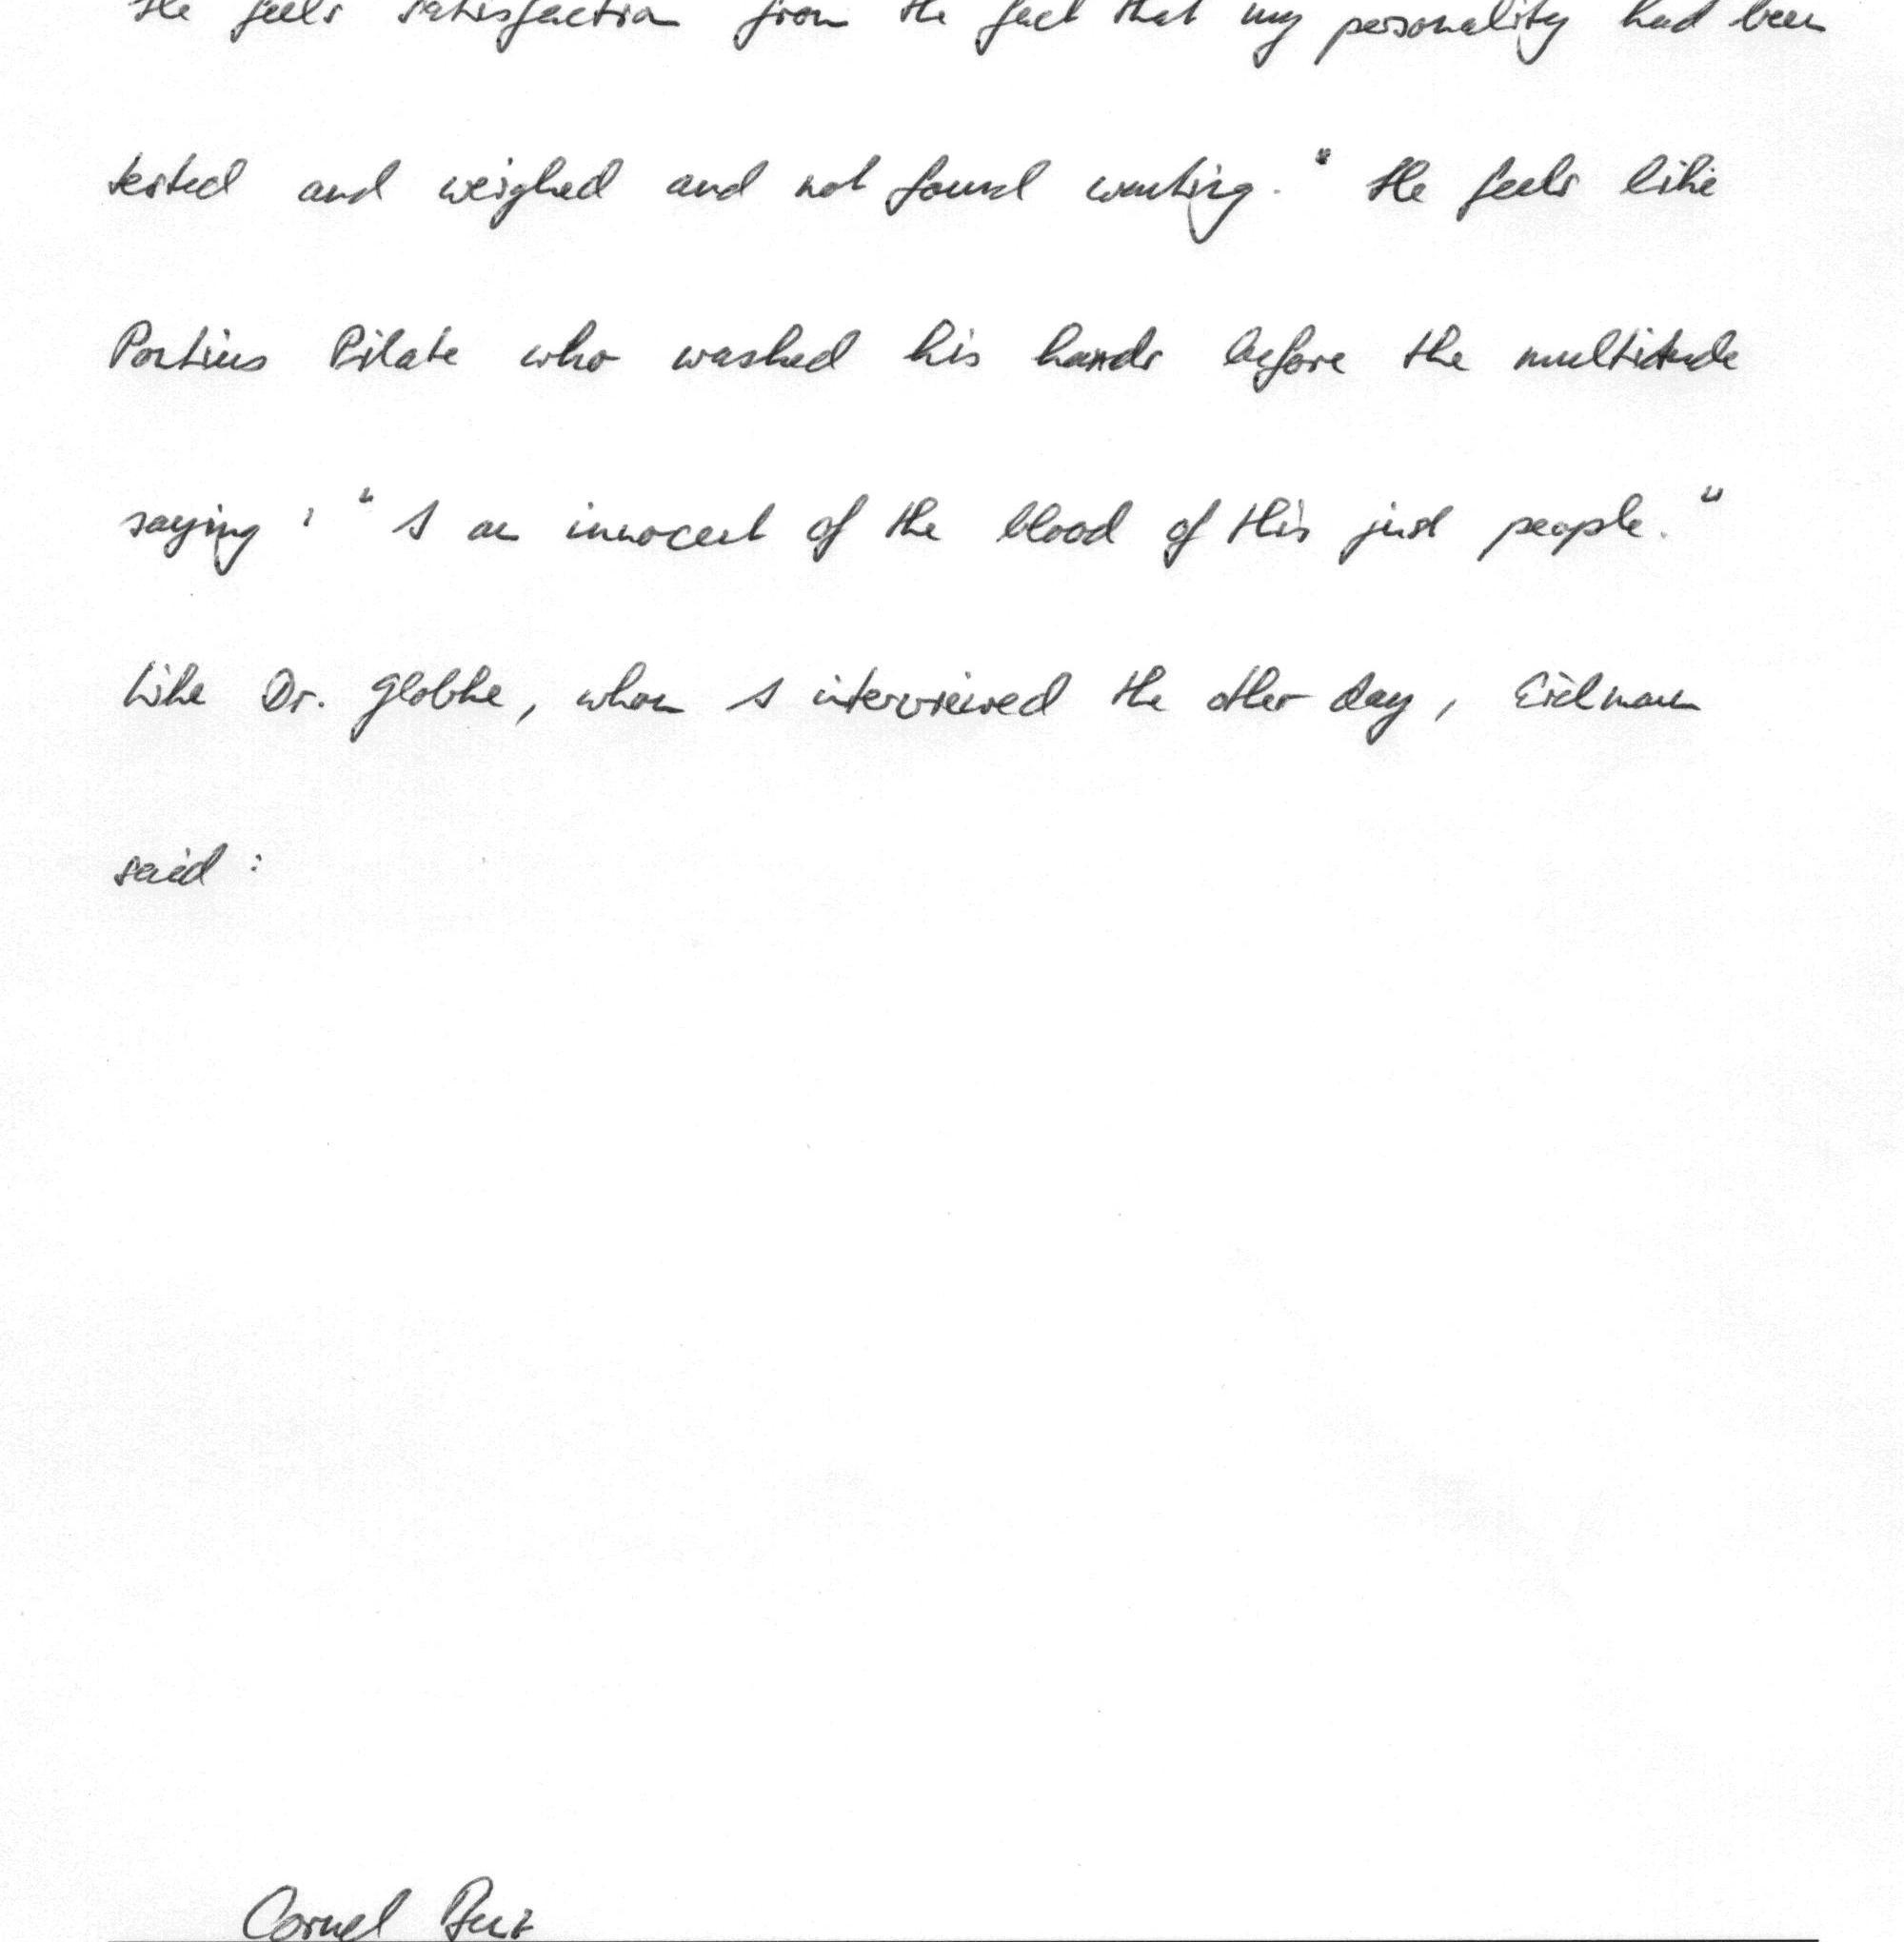 He feels satisfaction from the fact that my personality had been
tested and weighed and not found wanting." He feels like
Pontius Pilate who washed his hands before the multitude
saying : " I am innocent of the blood of this just people. "
Like Dr. Globke, whom I interviewed the other day, Eichmann
said :
Cornel